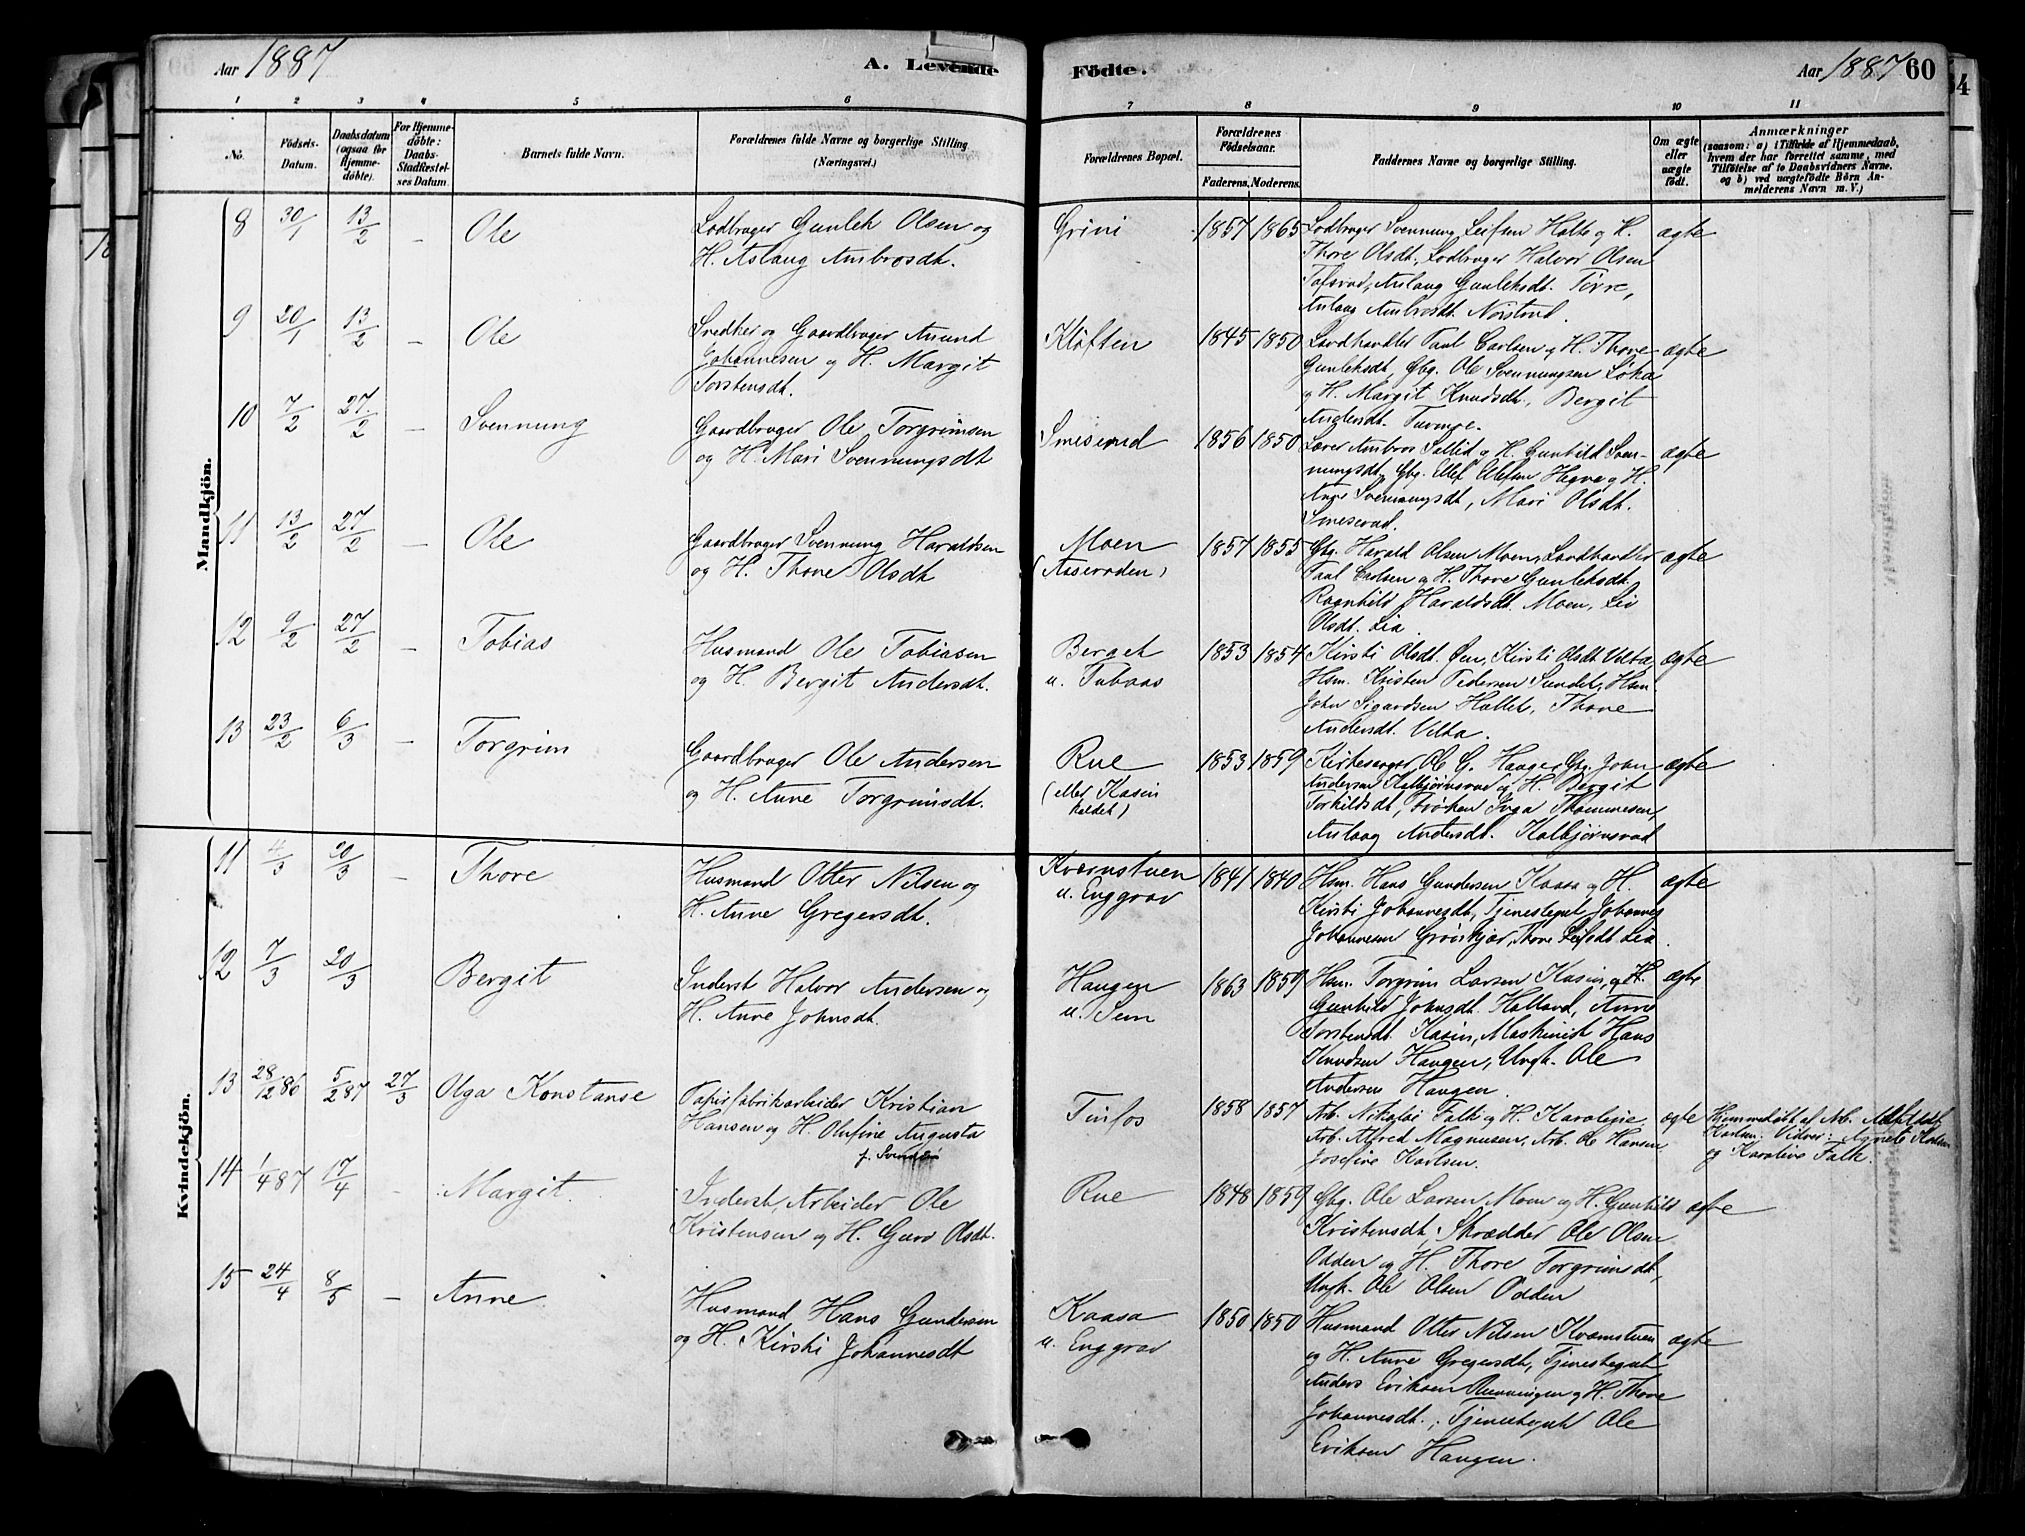 Aar 1887
A. Levende
Födte.
Aar 1887
60
1 2 3 4 5 6 7 8 9 10 11
No.
Födsels-
Datum.
Daabsdatum
(ogsaa for
Hjemme-
döbte).
For Hjemme-
döbte:
Daabs-
Stadfæstel-
ses Datum.
Barnets fulde Navn.
Forældrenes fulde Navne og borgerlige Stilling
(Næringsvei.)
Forældrenes Bopæl.
Forældrenes
Födselsaar.
Faderens. Moderens.
Faddernes Navne og borgerlige Stilling.
Om ægte
eller
uægte
födt.
Anmærkninger
(saasom: a) i Tilfælde af Hjemmedaab,
hvem der har forrettet samme, med
Tilföielse af to Daabsvidners Navne.
og b) ved uægtefödte Börn An-
melderens Navn m. V.)
Mandkjön.
8 30/1 13/2 – Ole
Lodbruger Gunlek Olsen og
H. Aslaug Ambrosdt.
Grini
1857 1865
Lodbruger Svennung Leifsen Halte og H.
Thore Olsdt., Lodbruger Halvor Olsen
Aslaug Gunleksdt.
Aslaug Ambrosdt.
ægte
9 20/1 13/2 – Ole
Snedker og Gaardbruger Amund
Johannesen og H. Margit
Torstensdt.
Kløften
1845 1850
Landhandler Paul Carlsen og H. Thore
Gunleksdt., Gbg. Ole Svennungsen Løka
og H. Margit Knudsdt., Bergit
Andersdt.
ægte
10 7/2 27/2 – Svennung
Gaardbruger Ole Torgrimsen
og H. Mari Svennungsdt
Smeserud
1856 1850
Lærer Ambros Sollid og H. Gunhild Sven-
nungsdt, Gbg. Ellef Ellefsen Hegna og H.
Anne Svennungsdt, Mari Olsdt.
Smeserud.
ægte
11 13/2 27/2 – Ole
Gaardbruger Svennung Haraldsen
og H. Thore Olsdt
Moen
(Aaseroden)
1857 1855
Gbg. Harald Olsen Moen, Landhandler
Paul Carlsen og H. Thore Gunleksdt.
Ragnhild Haraldsdt. Moen, Liv
Olsdt. Lia.
ægte
12 9/2 27/2 – Tobias
Husmand Ole Tobiasen
og H. Bergit Andersdt.
Berget
u. Tubaas
1853 1854
Kirsti Olsdt. Øen, Kirsti Olsdt Velta,
Hsm. Kristen Pedersen Sundet, Hsm.
John Sigurdsen Hallet, Thore
Andersdt. Velta.
ægte
13 23/2 6/3 – Torgrim
Gaardbruger Ole Andersen
og H. Anne Torgrimsdt.
Rue
(eller Kasin
kaldet)
1853 1859
Kirkesanger Ole G. Haugen, Gbg. John
Andersen Kalbjørnsrud og H. Bergit
Torkildsdt, Frøken Inga Thommesen,
Aslaug Andersdt. Kalbjørnsrud
ægte
Kvindekjön.
11 4/3 20/3 – Thore
Husmand Otter Nilsen og
H. Anne Gregersdt.
Kvernstuen
u. Enggrav
1841 1840
Hsm. Hans Gundersen Kaasa og H.
Kirsti Johannesdt, Tjenestegut Johannes
Johannesen Grønkjær, Thore Leifsdt Lia.
ægte
12 7/3 20/3 Bergit
Inderst Halvor Andersen og
H. Anne Johnsdt.
Haugen
u. Sem
1863 1859
Hsm. Torgrim Larsen Kasin, og H.
Gunhild Johnsdt. Kolland, Anne
Torstensdt. Kasin, Maskinist Hans
Knudsen Haugen, Ungk. Ole
Andersen Haugen.
ægte
13 28/12 86 5/2 87 27/3 Olga Konstanse
Papirfabrikarbeider Kristian
Hansen og H. Olufine Augusta
f. Svendsen
Tinfos
1858 1857
Arb. Nikolai Falk og H. Karolegie
Arb. Alfred Magnusen, Arb. Ole Hansen,
Josefine Karlsen.
ægte
Hjemmedøbt af Arb.
Karlsen. Vidner: Agnete Karlsen
og Karoline Falk.
14 1/4 87 17/4 – Margit.
Inderst, Arbeider Ole
Kristensen og H. Guro Olsdt.
Rue
1848 1859
Gbg. Ole Larsen Moen og H. Gunhild
Kristensdt, Skrædder Ole Olsen
Odden og H. Thore Torgrimsdt,
Ungk. Ole Olsen Odden
ægte
15 24/4 8/5 – Anne
Husmand Hans Gundersen
og H. Kirsti Johannesdt
Kaasa
u. Enggrav
1850 1850
Husmand Otter Nilsen Kvernstuen
og H. Anne Gregersdt, Tjenestegut
Anders Eriksen Rønningen og H. Thore
Johannesdt., Tjenestegut Ole
Eriksen Haugen.
ægte